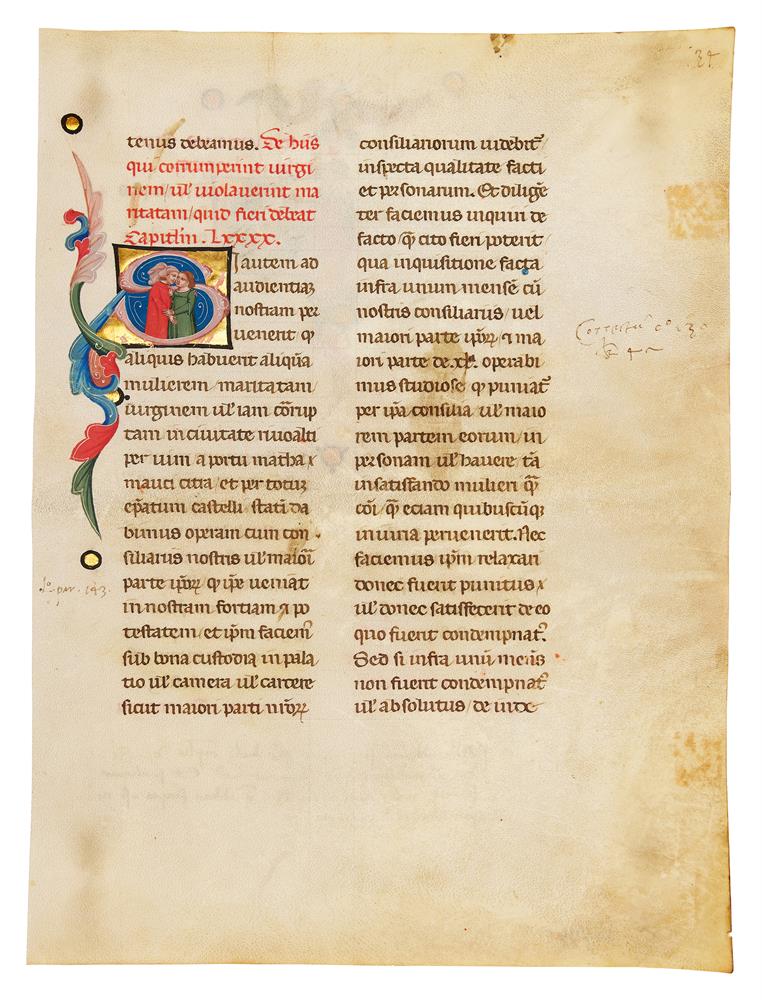 34
tenus debeamus. De hiis
qui corrumperint uirgi
nem / uł uiolauerint ma
ritatam / quid fieri debeat
Capitlm . Lxxxx.
Si autem ad
audientiaʒ
nostram per
uenerit ꝙ
aliquis habuerit aliquā
mulierem / maritatam /
uirginem uł iam corrup
tam in ciuitate riuoalti
per uim a portu
mauci citra / et per totuʒ
ep̄atum castelli / statī da
bimus operam cum con
siliariis nostris uł maiori
parte ip̄oꝝ ꝙ ip̄e ueniat
in nostram fortiam ⁊ po
testatem / et ip̄m faciem⁹
sub bona custodia in pala
tio uł camera uł carcere
sicut maiori parti nr̄oꝝ
consiliariorum uidebit᷑ /
inspecta qualitate facti
et personarum. Et diligē
ter faciemus inquiri de
facto / ꝙ̄ cito fieri poterit /
qua inquisitione facta
infra unum mensē cū
nostris consiliariis / uel
maiori parte ip̄oꝝ / ⁊ ma
iori parte de .xl. operabi
mus studiose ꝙ puniat᷑
per ip̄a consilia uł maio
rem partem eorum / in
personam uł hauere tā
in satisfando mulieri ꝙ̄
cōi / ꝙ̄ eciam quibuscūqʒ
iniuria peruenerit. Nec
faciemus ip̄m relaxari
donec fuerit punitus /
uł donec satisfecerit de eo
quo fuerit condempnat⁹.
Sed si infra unū mensis
non fuerit condempnat⁹
uł absolutus / de inde